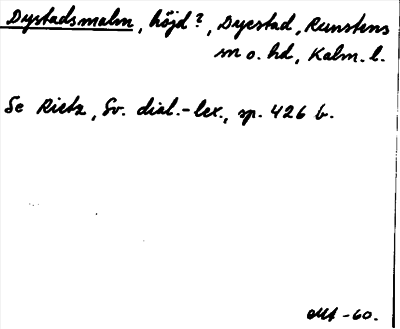 Dystadsmalm, höjd?, Dyestad, Runstens
sn o. hd, Kalm. l.
Se Rietz, Sv. dial.-lex., sp. 426 b.
-60.